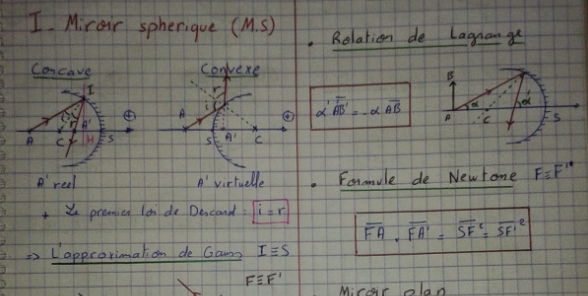 I - Miroir spherique (M.S)
Concave
Convexe
I
i
r
A
C
A'
H
S
⊕
r
A
S
A'
C
⊕
A' reel
A' virtuelle
+ Le premier loi de Descard : i = r
=> L'approximation de Gauss I≡S
F≡F'
. Relation de Lagrange
α' A'B' = - α AB
B
A
α
C
α'
S
. Formule de Newtone F≡F'
FA . FA' = SF² = SF'²
Miroir plan